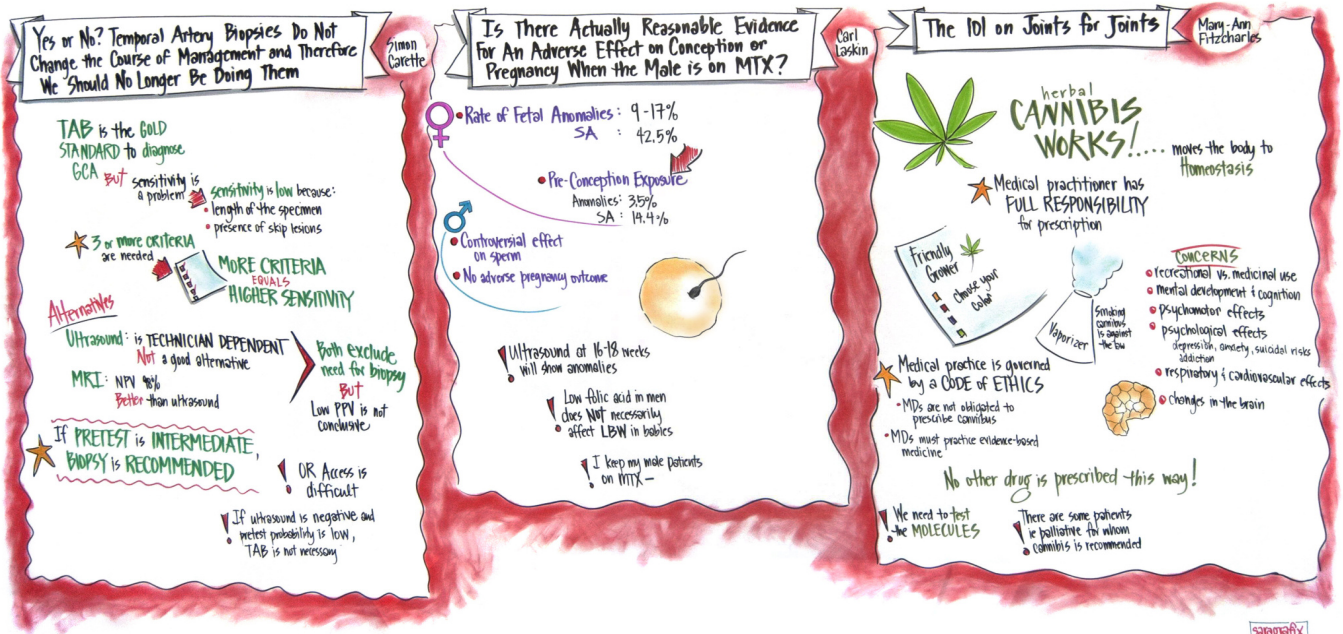 Yes or No? Temporal Artery Biopsies Do Not
Change the Course of Management and Therefore
We Should No Longer Be Doing Them
Simon
Carette
TAB is the GOLD
STANDARD to diagnose
GCA BUT sensitivity is
a problem
sensitivity is low because:
• length of the specimen
• presence of skip lesions
3 or more CRITERIA
are needed
MORE CRITERIA
EQUALS
HIGHER SENSITIVITY
Alternatives
Ultrasound: is TECHNICIAN DEPENDENT
Not a good alternative
MRI: NPV 98%
Better than ultrasound
Both exclude
need for biopsy
BUT
Low PPV is not
conclusive
If PRETEST is INTERMEDIATE,
BIOPSY is RECOMMENDED
! OR Access is
difficult
! If ultrasound is negative and
pretest probability is low,
TAB is not necessary
Is There Actually Reasonable Evidence
For An Adverse Effect on Conception or
Pregnancy When the Male is on MTX?
Carl
Laskin
• Rate of Fetal Anomalies: 9-17%
SA : 42.5%
• Pre-Conception Exposure
Anomalies: 3.5%
SA: 14.4%
• Controversial effect
on sperm
• No adverse pregnancy outcome
! Ultrasound at 16-18 weeks
will show anomalies
! Low folic acid in men
does NOT necessarily
affect LBW in babies
! I keep my male patients
on MTX –
The 101 on Joints for Joints
Mary-Ann
Fitzcharles
herbal
CANNIBIS
WORKS!.... moves the body to
Homeostasis
Medical practitioner has
FULL RESPONSIBILITY
for prescription
Friendly
Grower
choose your
color
Vaporizer
Smoking
cannibus
is against
the law
CONCERNS
• recreational vs. medicinal use
• mental development & cognition
• psychomotor effects
• psychological effects
depression, anxiety, suicidal risks
addiction
• respiratory & cardiovascular effects
• changes in the brain
Medical practice is governed
by a CODE of ETHICS
• MDs are not obligated to
prescribe cannibus
• MDs must practice evidence-based
medicine
No other drug is prescribed this way!
! We need to test
the MOLECULES
! There are some patients
ie palliative for whom
cannibis is recommended